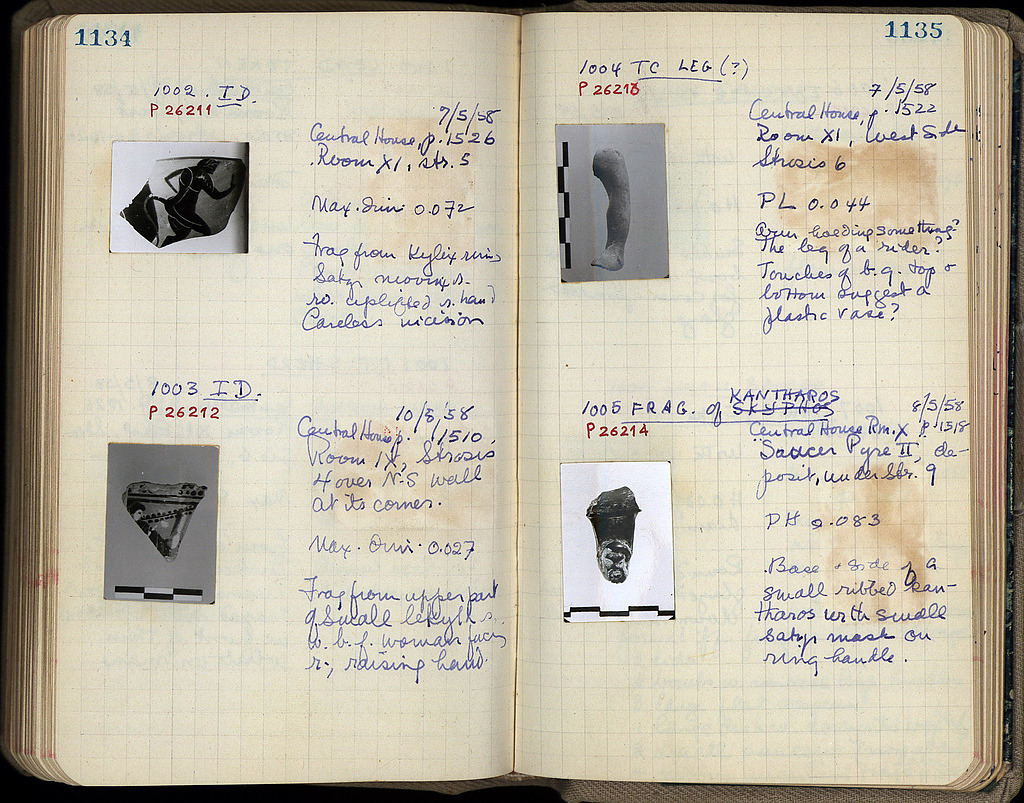 1134
1002. I D.
P 26211
7/5/58
Central House, p. 1526
Room XI, str. 5
Max. dim. 0.072
Frag from Kylix rim
Satyr moving
r. uplifted hand
Careless incision
1003 I D.
P 26212
10/5/58
Central House p. 1510,
Room IX, Strosis
4 over N-S wall
at its corner.
Max. Dim. 0.027
Frag from upper part
of Small lekythos
w. b. f. woman facing
r., raising hand.
1135
1004 TC LEG (?)
P 26213
7/5/58
Central House, p. 1522
Room XI, West Side
Strosis 6
PL 0.044
Arm holding something?
The leg of a rider?
Touches of b. g. top &
bottom suggest a
plastic vase?
KANTHAROS
1005 FRAG. of SKYPHOS
P 26214
8/5/58
Central House Rm. X p. 1518
Saucer Pyre II, de-
posit, under Str. 9
PH 0.083
Base + side of a
small ribbed kan-
tharos with small
satyr mask on
ring handle.